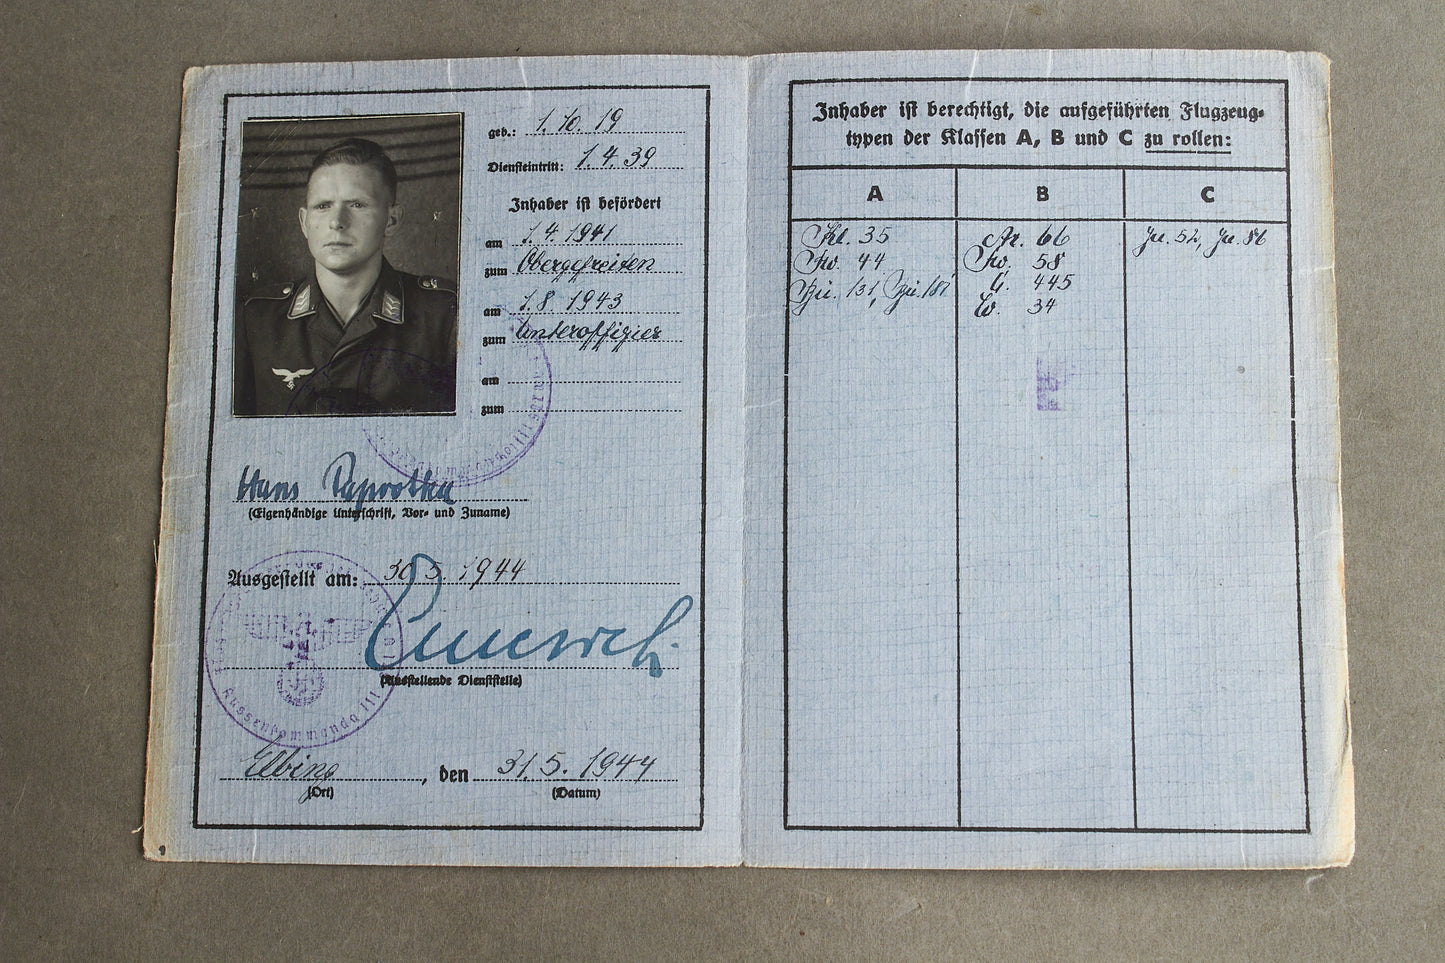 geb.: 1.10.19
Diensteintritt: 1.4.39
Inhaber ist befördert
am 1.4.1941
zum Obergefreiten
am 1.8.1943
zum Unteroffizier
am
zum
Hans Paprotka
(Eigenhändige Unterschrift, Vor- und Zuname)
Ausgestellt am: 30.5.1944
(Ausstellende Dienststelle)
Aussenkommando III
Elbing, den 31.5.1944
(Ort) (Datum)
Inhaber ist berechtigt, die aufgeführten Flugzeug-
typen der Klassen A, B und C zu rollen:
A B C
Kl. 35 Ar. 66 Ju. 52, Ju. 86
Fw. 44 Fw. 58
Bü. 131, Bü. 181 G. 445
W. 34